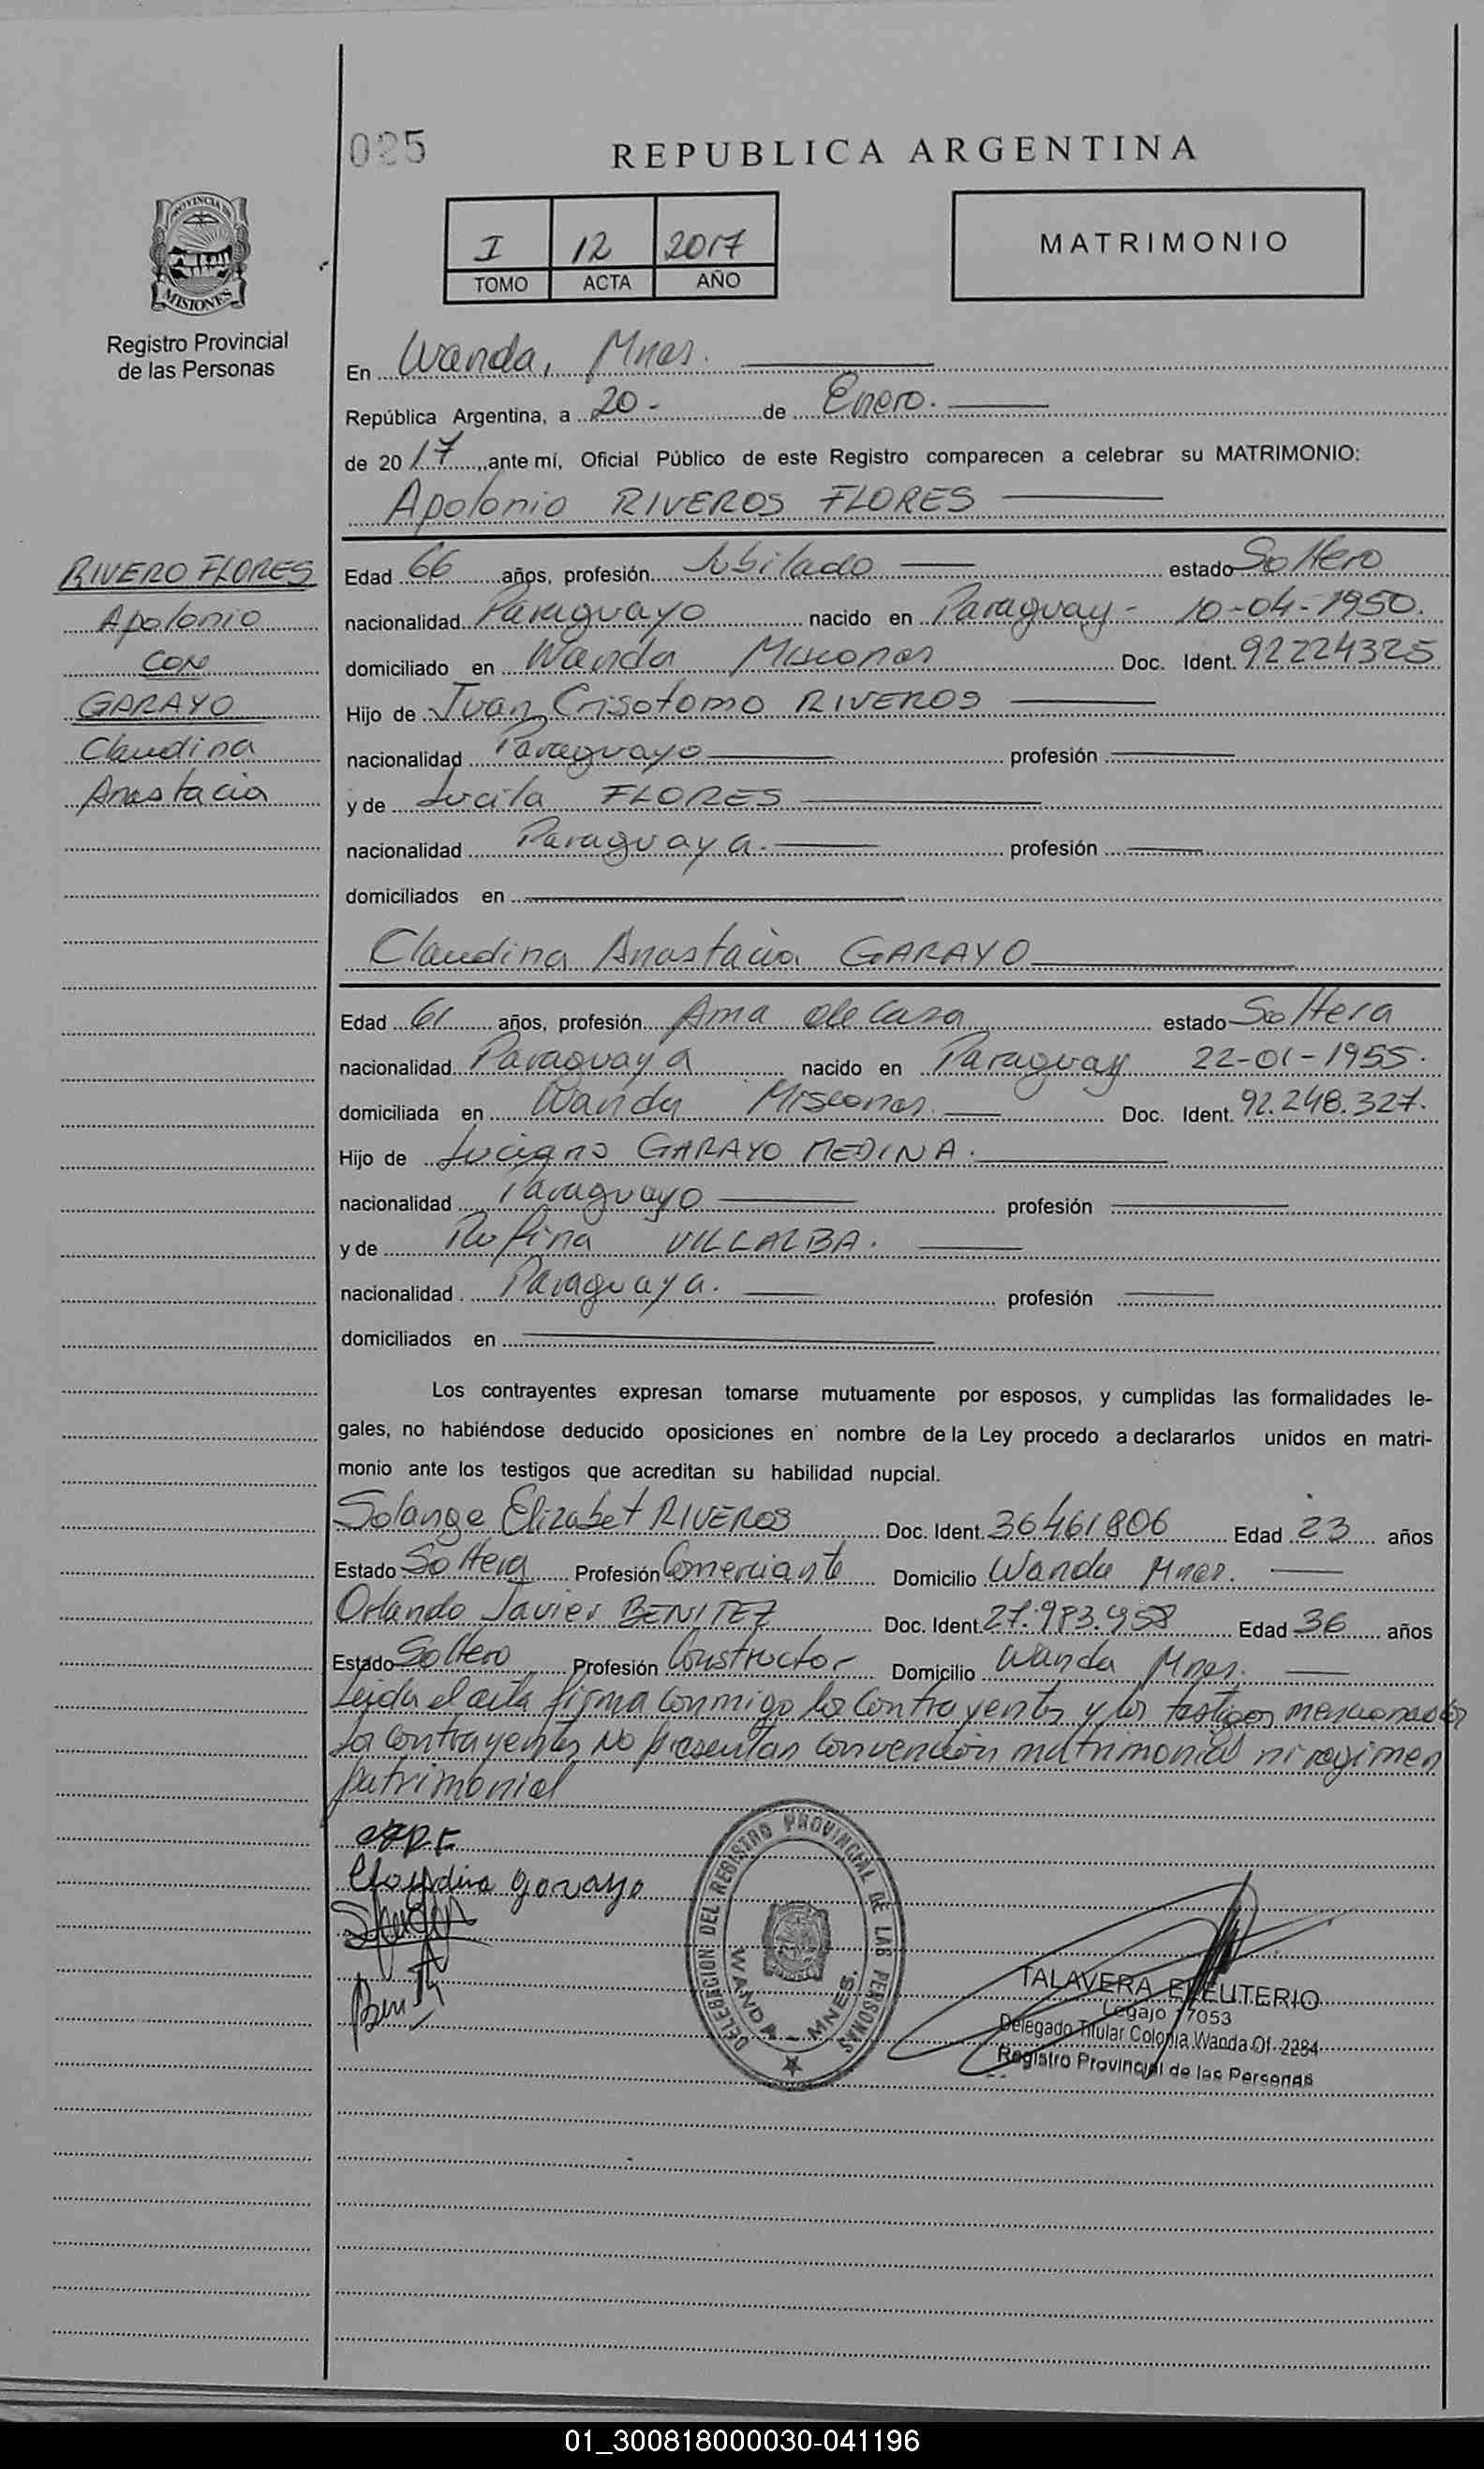 025
REPUBLICA ARGENTINA
PROVINCIA DE
MISIONES
Registro Provincial
de las Personas
I 12 2017
TOMO ACTA AÑO
MATRIMONIO
En Wanda, Mnes.
República Argentina, a 20 - de Enero.
de 2017, ante mí, Oficial Público de este Registro comparecen a celebrar su MATRIMONIO:
Apolonio RIVEROS FLORES
RIVERO FLORES
Apolonio
CON
GARAYO
Claudina
Anastacia
Edad 66 años, profesión Jubilado estado Soltero
nacionalidad Paraguayo nacido en Paraguay - 10-04-1950.
domiciliado en Wanda Misiones Doc. Ident. 92224325
Hijo de Juan Crisotomo RIVEROS
nacionalidad Paraguayo profesión
y de Lucila FLORES
nacionalidad Paraguaya. profesión
domiciliados en
Claudina Anastacia GARAYO
Edad 61 años, profesión Ama de Casa estado Soltera
nacionalidad Paraguaya nacido en Paraguay 22-01-1955.
domiciliada en Wanda Misiones. Doc. Ident. 92.248.327.
Hijo de Luciano GARAYO MEDINA.
nacionalidad Paraguayo profesión
y de Rufina VILLALBA.
nacionalidad Paraguaya. profesión
domiciliados en
Los contrayentes expresan tomarse mutuamente por esposos, y cumplidas las formalidades le-
gales, no habiéndose deducido oposiciones en nombre de la Ley procedo a declararlos unidos en matri-
monio ante los testigos que acreditan su habilidad nupcial.
Solange Elizabet RIVEROS Doc. Ident. 36461806 Edad 23 años
Estado Soltera Profesión Comerciante Domicilio Wanda Mnes.
Orlando Javier BENITEZ Doc. Ident. 27.983.958 Edad 36 años
Estado Soltero Profesión Constructor Domicilio Wanda Mnes.
Leida el acta firma conmigo los Contrayentes y los testigos mencionados
Los contrayentes No presentan convención matrimonial ni regimen
patrimonial
Claudina Garayo
DELEGACION DEL REGISTRO PROVINCIAL DE LAS PERSONAS
WANDA - MNES.
TALAVERA ELEUTERIO
Legajo 17053
Delegado Titular Colonia Wanda Of. 2284
Registro Provincial de las Personas
01_300818000030-041196